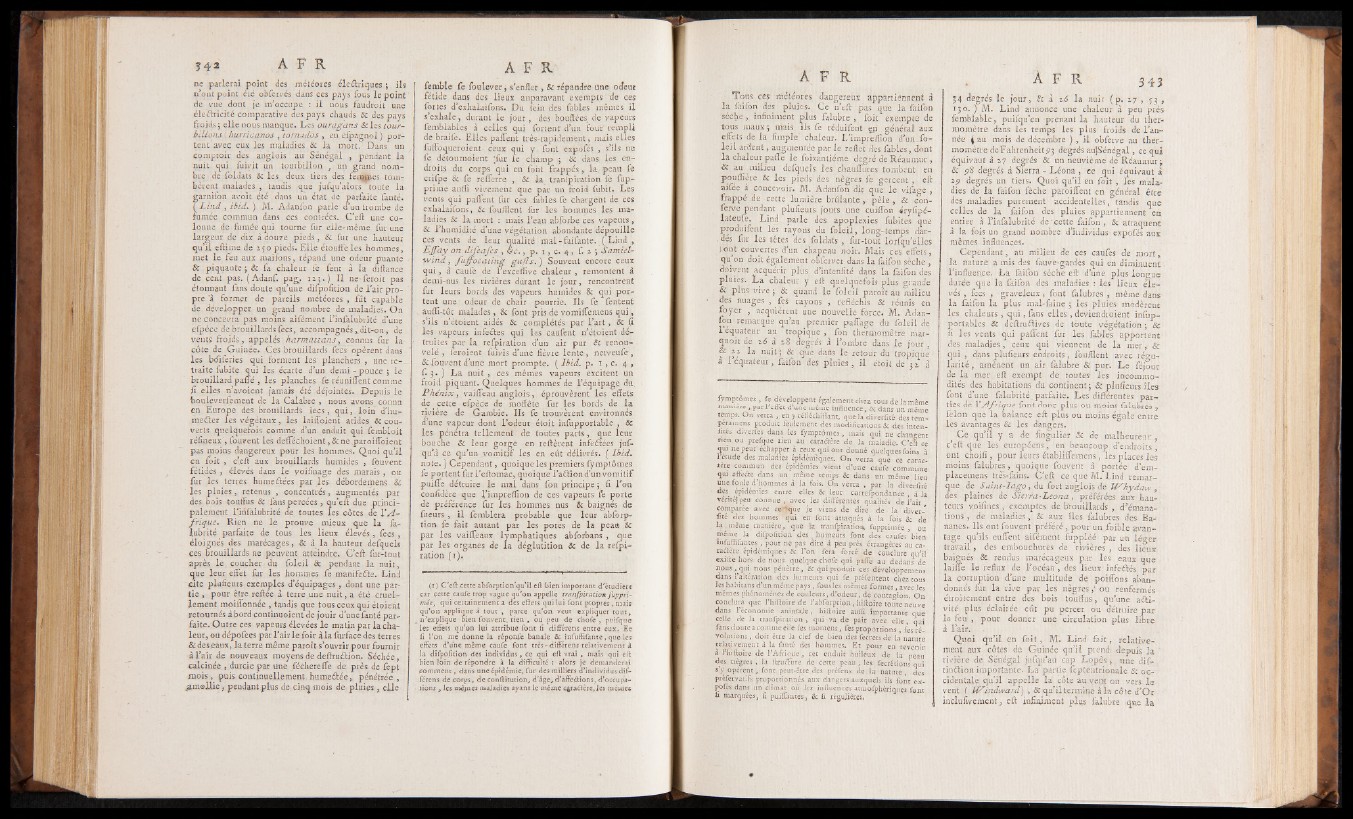 342 A F R
ne parlerai point des météores éléctriques ; ils
n'ont point été observés dans ces pays sous le point
de vue dont je m'occupe : il nous faudroit une
éléctricité comparative des pays chauds & des pays
froids ; elle nous manque. Les ouragans & les tour-
billons ( hurricanos , tornados , en espagnol ) por-
tent avec eux les maladies & la mort. Dans un
comptoir des anglois au Sénégal , pendant la
nuit qui suivit un tourbillon , un grand nom-
bre de soldats & les deux tiers des femmes tom-
bèrent malades , tandis que jusqu'alors toute la
garnison avoit été dans un état de parfaite santé.
( Lind , ibid. ) M. Adanson parle d'un trombe de
fumée commun dans ces contrées. C'est une co-
lonne de fumée qui tourne sur elle-même sur une
largeur de dix à douze pieds , & sur une hauteur
qu'il estime de 250 pieds. Elle étouffe les hommes ,
met le feu aux maisons , répand une odeur puante
& piquante ; & sa chaleur se sent à la distance
de cent pas. ( Adans. pag. 125. ) Il ne seroit pas
étonnant sans doute qu'une disposition de l'air pro-
pre à former de pareils météores , fût capable
de développer un grand nombre de maladies. On
ne concevra pas moins aisément l'insalubrité d'une
espèce de brouillards secs, accompagnés , dit-on , de
vents froids , appelés harmattans , connus sur la
côte de Guinée. Ces brouillards secs opèrent dans
les boiseries qui forment les planchers , une re-
traite subite qui les écarte d'un demi-pouce ; le
brouillard passé , les planches se réunissent comme
si elles n'avoient jamais été déjointes. Depuis le
bouleversement de la Calabre , nous avons connu
en Europe des brouillards secs , qui , loin d'hu-
mecter les végétaux , les laissoient arides & cou-
verts quelquefois comme d'un enduit qui sembloit
résineux , souvent les desséchoient , & ne paroissoient
pas moins dangereux pour les hommes. Quoi qu'il
en soit , c'est aux brouillards humides , souvent
fétides , élevés dans le voisinage des marais , ou
sur les terres humectées par les débordemens &
les pluies , retenus , concentrés , augmentés par
des bois touffus & sans percées , qu'est due princi-
palement l'insalubrité de toutes les côtes de l'A-
frique. Rien ne le prouve mieux que la sa-
lubrité parfaite de tous les lieux élevés , secs ,
éloignés des marécages , & à la hauteur desquels
ces brouillards ne peuvent atteindre. C'est sur-tout
après le coucher du soleil & pendant la nuit ,
que leur effet sur les hommes se manifeste. Lind
cite plusieurs exemples d'équipages , dont une par-
tie , pour être restée à terre une nuit , a été cruel-
lement moissonnée , tandis que tous ceux qui étoient
retournés à bord continuoient de jouir d'une santé par-
faite. Outre ces vapeurs élevées le matin par la cha-
leur, ou déposées par l'air le soir à la surface des terres
& des eaux, la terre même paroît s'ouvrir pour fournir
à l'air de nouveaux moyens de destruction. Séchée ,
calcinée , durcie par une sécheresse de près de sept
mois , puis continuellement humectée , pénétrée ,
amollie , pendant plus de cinq mois de pluies , elle
A F R
semble se soulever , s'enfler , & répandre une odeur
fétide dans des lieux auparavant exempts de ces
sortes d'exhalaisons. Du sein des sables mêmes il
s'exhale , durant le jour , des bouffées de vapeurs
semblables à celles qui sortent d'un four rempli
de braise. Elles passent très-rapidement , mais elles
suffoqueroient ceux qui y sont exposés , s'ils ne
se détournoient sur le champ ; & dans les en-
droits du corps qui en sont frappés , la peau se
crispe & se resserre , & la transpiration se sup-
prime aussi vivement que par un froid subit. Les
vents qui passent sur ces sables se chargent de ces
exhalaisons , & soufflent sur les hommes les ma-
ladies & la mort : mais l'eau absorbe ces vapeurs ,
& l'humidité d'une végétation abondante dépouille
ces vents de leur qualité mal-faisante. ( Lind ,
Essay on diseases , &c. , p. 1 , c. 4 , s. 2 ; Samiel-
wind , suffocating gusts. ) Souvent encore ceux
qui , à cause de l'excessive chaleur , remontent à
demi-nus les rivières durant le jour , rencontrent
sur leurs bords des vapeurs humides & qui por-
tent une odeur de chair pourrie. Ils se sentent
aussi-tôt malades , & sont pris de vomissemens qui ,
s'ils n'étoient aidés & complétés par l'art , & si
les vapeurs infectes qui les causent n'étoient dé-
truites par la respiration d'un air pur & renou-
velé , seroient suivis d'une fièvre lente , nerveuse ,
& souvent d'une mort prompte. ( Ibid. p. 1 , c. 4 ,
s. 3. ) La nuit , ces mêmes vapeurs excitent un
froid piquant. Quelques hommes de l'équipage du
Phénix , vaisseau anglois , éprouvèrent les effets
de cette espèce de moffète sur les bords de la
rivière de Gambie. Ils se trouvèrent environnés
d'une vapeur dont l'odeur étoit insupportable , &
les pénétra tellement de toutes parts , que leur
bouche & leur gorge en restèrent infectées jus-
qu'à ce qu'un vomitif les en eût délivrés. ( Ibid.
note. ) Cependant , quoique les premiers symptômes
se portent sur l'estomac, quoique l'action d'un vomitif
puisse détruire le mal dans son principe ; si l'on
considère que l'impression de ces vapeurs se porte
de préférence sur les hommes nus & baignés de
sueurs , il semblera probable que leur absorp-
tion se fait autant par les pores de la peau &
par les vaisseaux lymphatiques absorbans , que
par les organes de la déglutition & de la respi-
ration (1).
(1) C'est cette absorption qu'il est bien important d'étudier ;
car cette cause trop vague qu'on appelle transpiration suppri-
mée , qui certainement a des effets qui lui sont propres , mais
qu'on applique à tout , parce qu'on veut expliquer tout ,
n'explique bien souvent rien , ou peu de chose , puisque
les effets qu'on lui attribue sont si différens entre eux. Et
si l'on me donne la réponse banale & insuffisante , que les
effets d'une même cause sont très-différens relativement à
la disposition des individus , ce qui est vrai , mais qui est
bien loin de répondre à la difficulté : alors je demanderai
comment , dans une épidémie, sur des milliers d'individus dif-
férens de corps , de constitution, d'âge, d'affections, d'occupa-
tions , les mêmes maladies ayant le même caractère, les mêmes
A F R
Tous ces météores dangereux appartiennent à
la saison des pluies. Ce n'est pas que la saison
sèche , infiniment plus salubre , soit exempte de
tous maux ; mais ils se réduisent en général aux
effets de la simple chaleur. L'impression d'un so-
leil ardent , augmentée par le reflet des sables, dont
la chaleur passe le soixantième degré de Réaumur ,
& au milieu desquels les chaussures tombent en
poussière & les pieds des nègres se gercent , est
aisée à concevoir. M. Adanson dit que le visage ,
frappé de cette lumière brûlante , pèle , & con-
serve pendant plusieurs jours une cuisson érysipé-
lateuse. Lind parle des apoplexies subites que
produisent les rayons du soleil , long-temps dar-
dés sur les têtes des soldats , sur-tout lorsqu'elles
sont couvertes d'un chapeau noir. Mais ces effets ,
qu'on doit également observer dans la saison sèche ,
doivent acquérir plus d'intensité dans la saison des
pluies. La chaleur y est quelquefois plus grande
& plus vive ; & quand le soleil paroît au milieu
des nuages , ses rayons , réfléchis & réunis en
foyer , acquièrent une nouvelle force. M. Adan-
son remarque qu'au premier passage du soleil de
l'équateur au tropique , son thermomètre mar-
quoit de 26 à 28 degrés à l'ombre dans le jour ,
& 22 la nuit ; & que dans le retour du tropique
à l'équateur , saison des pluies , il étoit de 32 à
symptômes , se développent également chez tous de la même
manière , par l'effet d'une même influence , & dans un même
temps. On verra , en y réfléchissant, que la diversité des tem-
péramens produit seulement des modifications & des inten-
sités diverses dans les symptômes , mais qui ne changent
rien ou presque rien au caractère de la maladie. C'est ce
qui ne peut échapper à ceux qui ont donné quelques soins à
l'étude des maladies épidémiques. On verra que ce carac-
tère commun des épidémies vient d'une cause commune
qui affecte dans un même temps & dans un même lieu
une foule d'hommes à la fois. On verra , par la diversité
des épidémies entre elles & leur correspondance , à la
vérité peu connue , avec les différentes qualités de l'air ,
comparée avec ce que je viens de dire de la diver-
sité des hommes qui en sont attaqués à la fois & de
la même manière , que la transpiration supprimée , ou
même la disposition des humeurs sont des causes bien
insuffisantes , pour ne pas dire à peu près étrangères au ca-
ractère épidémique ; & l'on sera forcé de conclure qu'il
existe hors de nous quelque chose qui passe au dedans de
nous , qui nous pénètre , & qui produit ces développemens
dans l'altération des humeurs qui se présentent chez tous
les habitans d'un même pays , sous les mêmes formes , avec les
mêmes phénomènes de couleurs, d'odeur, de contagion. On
conclura que l'histoire de l'absorption , histoire toute neuve
dans l'économie animale , histoire aussi importante que
celle de la transpiration , qui va de pair avec elle , qui
sans doute a comme elle ses momens, ses proportions , ses ré-
volutions , doit être la clef de bien des secrets de la nature
relativement à la santé des hommes. Et pour en revenir
à l'histoire de l'Afrique , cet enduit huileux de la peau
des nègres , la structure de cette peau , les sécrétions qui
s'y opèrent , sont peut-être des présens de la nature , des
préservatifs proportionnés aux dangers auxquels ils sont ex-
posés dans un climat où les influences atmosphériques sont
si marquées, si puissantes, & si régulières.
A F R 343
34 degrés le jour , & à 26 la nuit ( p. 27 , 53 ,
130. ) M. Lind annonce une chaleur à peu près
semblable, puisqu'en prenant la hauteur du ther-
momètre dans les temps les plus froids de l'an-
née ( au mois de décembre ) , il observe au ther-
momètre de Fahrenheit 93 degrés au Sénégal , ce qui
équivaut à 27 degrés & un neuvième de Réaumur ;
& 98 degrés à Sierra - Léona , ce qui équivaut à
29 degrés un tiers. Quoi qu'il en soit , les mala-
dies de la saison sèche paroissent en général être
des maladies purement accidentelles , tandis que
celles de la saison des pluies appartiennent en
entier à l'insalubrité de cette saison , & attaquent
à la fois un grand nombre d'individus exposés aux
mêmes influences.
Cependant , au milieu de ces causes de mort ,
la nature a mis des sauve-gardes qui en diminuent
l'influence. La saison sèche est d'une plus longue
durée que la saison des maladies : les lieux éle-
vés , secs , graveleux , sont salubres , même dans
la saison la plus mal-saine ; les pluies modèrent
les chaleurs , qui , sans elles , deviendroient insup-
portables & destructives de toute végétation ; &
si les vents qui passent sur les sables apportent
des maladies , ceux qui viennent de la mer , &
qui , dans plusieurs endroits , soufflent avec régu-
larité , amènent un air salubre & pur. Le séjour
de la mer est exempt de toutes les incommo-
dités des habitations du continent ; & plusieurs îles
sont d'une salubrité parfaite. Les différentes par-
ties de l'Afrique sont donc plus ou moins salubres ,
selon que la balance est plus ou moins égale entre
les avantages & les dangers.
Ce qu'il y a de singulier & de malheureux ,
c'est que les européens, en beaucoup d'endroits ,
ont choisi , pour leurs établissemens , les places les
moins salubres , quoique souvent à portée d'em-
placemens très-sains. C'est ce que M. Lind remar-
que de Saint-Iago , du fort anglois de Whydaw ,
des plaines de Sierra-Leona , préférées aux hau-
teurs voisines , exemptes de brouillards , d'émana-
tions , de maladies , & aux îles salubres des Ba-
nanes. Ils ont souvent préféré , pour un foible avan-
tage qu'ils eussent aisément suppléé par un léger
travail , des embouchures de rivières , des lieux
baignés & rendus marécageux par les eaux que
laisse le reflux de l'océan , des lieux infectés par
la corruption d'une multitude de poissons aban-
donnés sur la rive par les nègres , ou renfermés
étroitement entre des bois touffus , qu'une acti-
vité plus éclairée eût pu percer ou détruire par
le feu , pour donner une circulation plus libre
à l'air.
Quoi qu'il en soit , M. Lind fait , relative-
ment aux côtes de Guinée qu'il prend depuis la
rivière de Sénégal jusqu'au cap Lopès , une dis-
tinction importante. La partie septentrionale & oc-
cidentale qu'il appelle la côte au vent ou vers le
vent ( Windward ) , & qu'il termine à la côte d'Or
inclusivement , est infiniment plus salubre que la